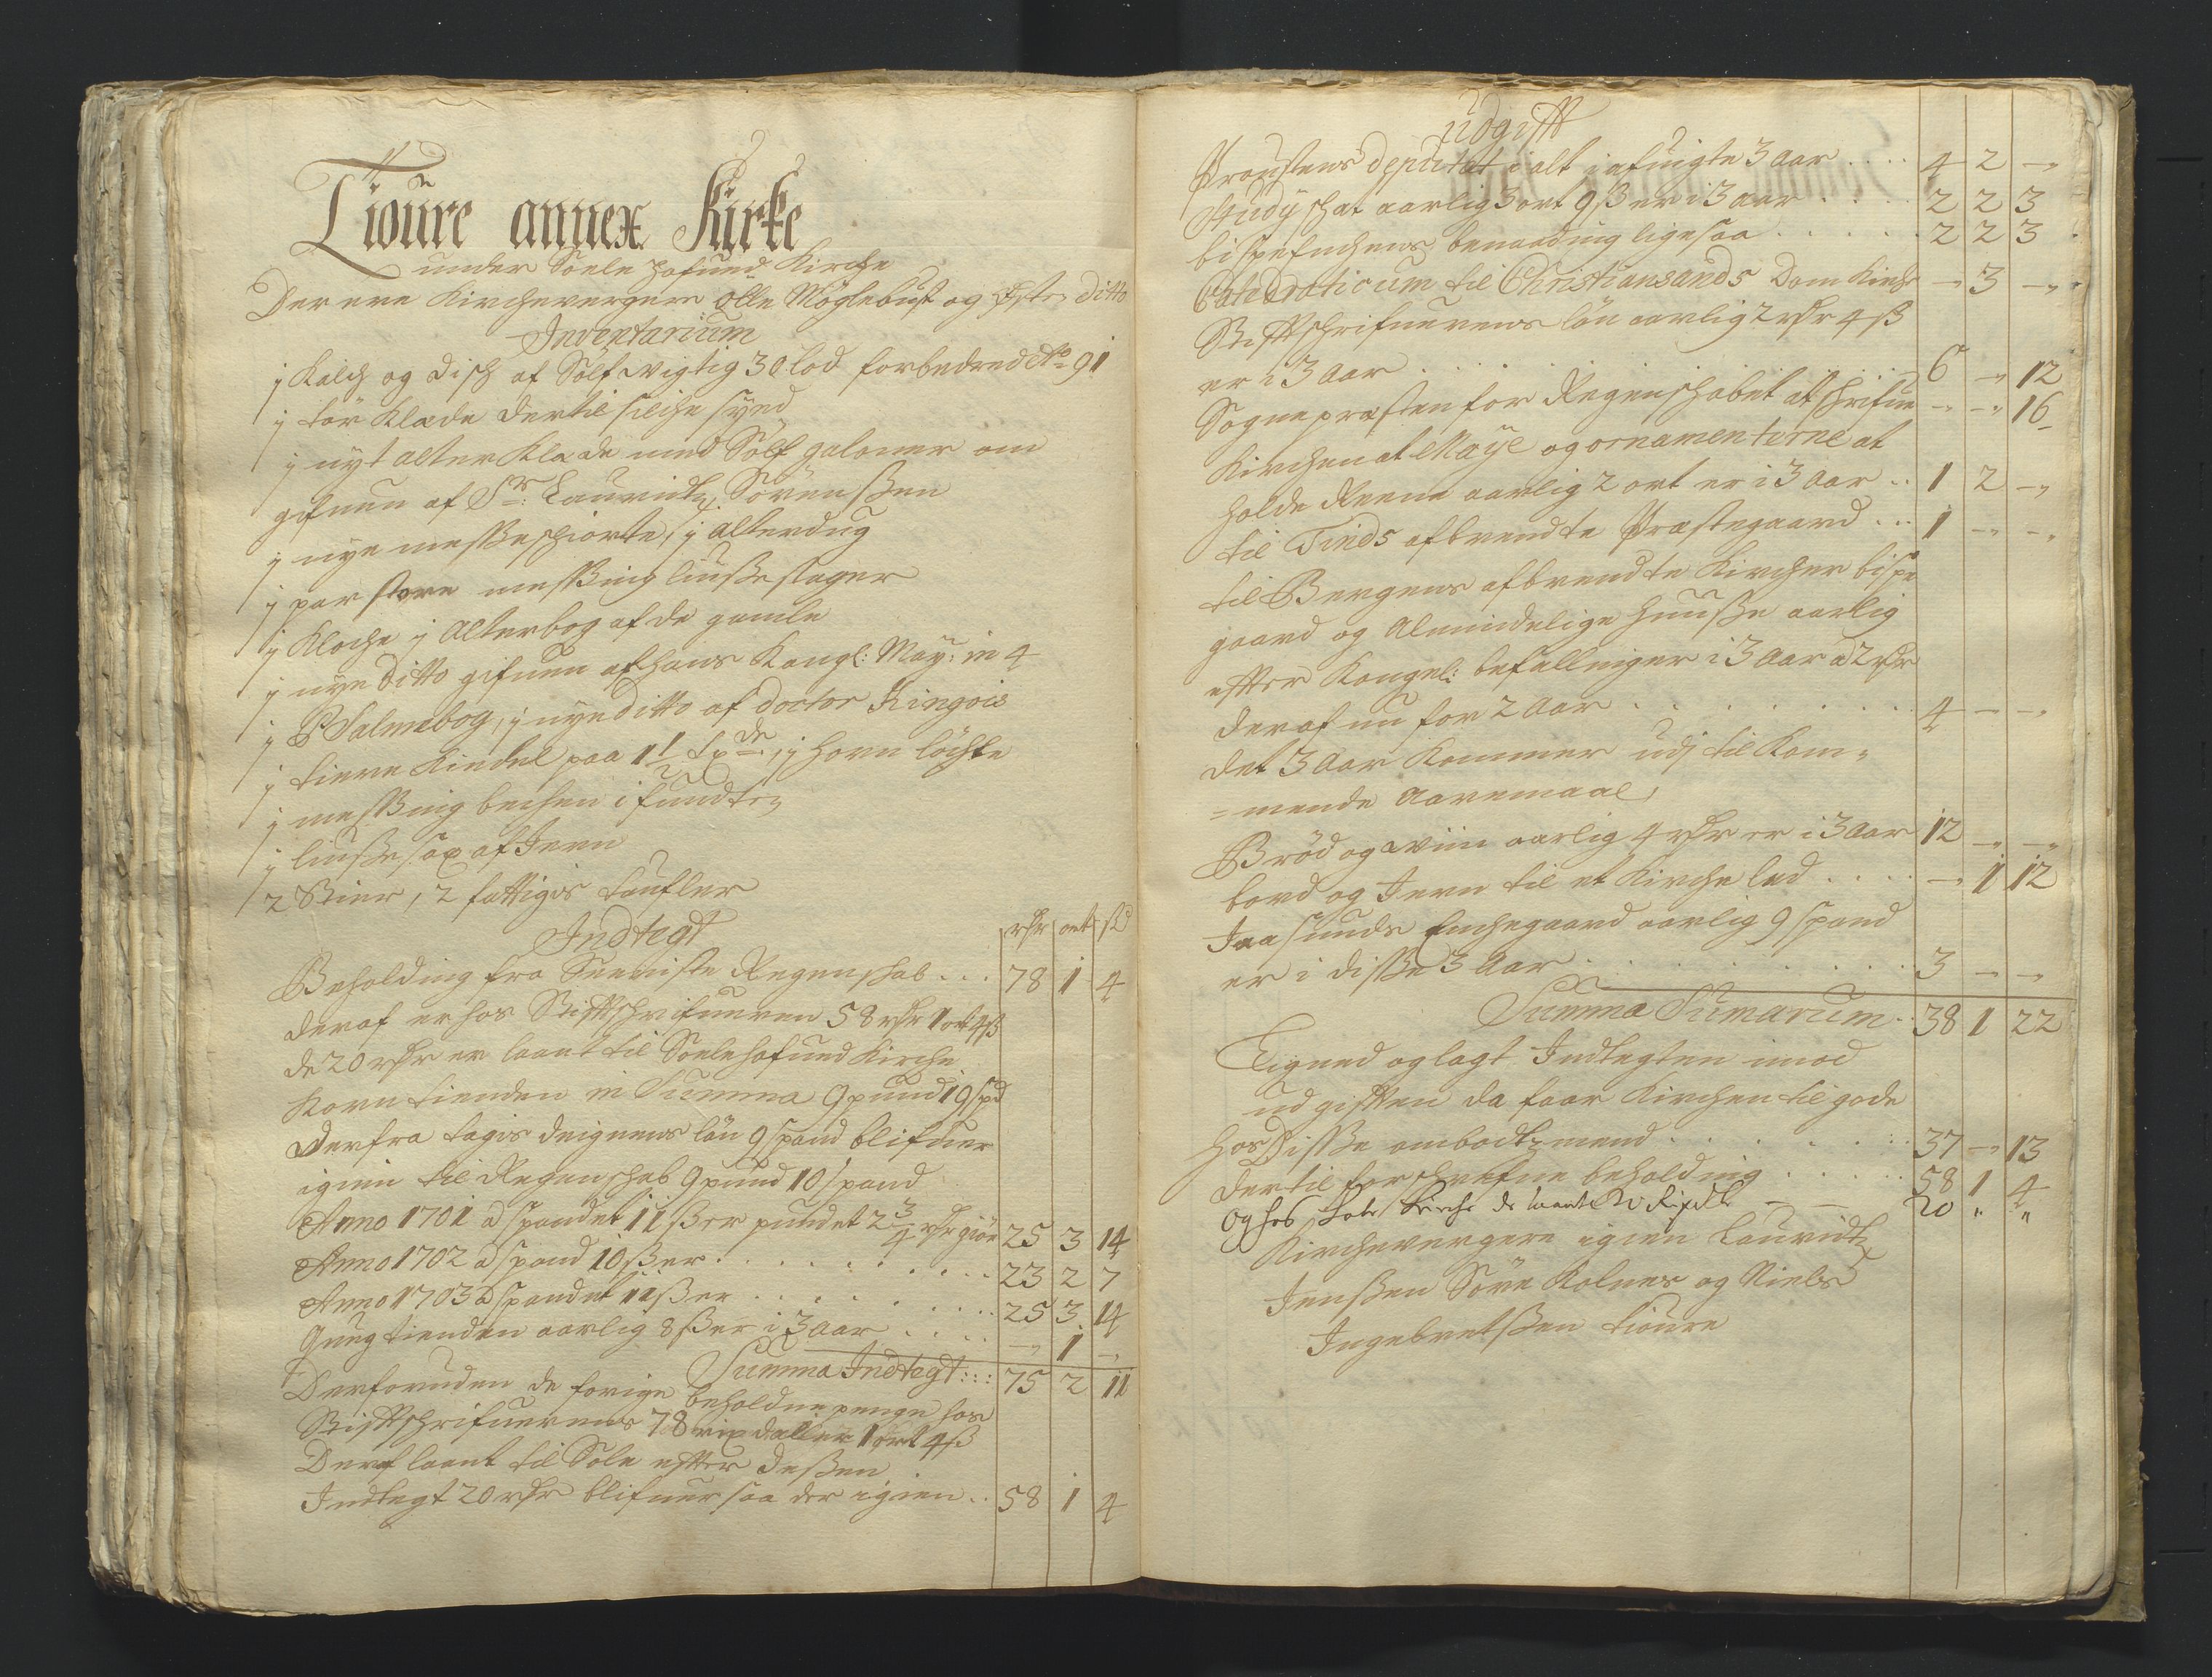 Tioure annex Kirke
under Soele hofued Kirche
Der ere Kirchevergere Olle Møglebust og Østen ditto
Inventarium
j Kalch og Disch af Sølf vigtig 30 lod forbedred Ao 91
j tør Klæde dertil silche syed
j nyt alter Klæde med Sølf galoner om
gifuen af Sr: Lauridtz Sörenßen
j nye messeschiorte, j alterdug
j par store messing liusestager
j Kloche j Alterbog af de gamle
j nye ditto gifuen af hans Kongl: May: in 4
j PSalmebog, j nye ditto af doctor Kingois
j tiere Kindel paa 1 1/2 tønde, j horn løchte
j messing bechen i fundten
j liusesax af Jern
2 Stier, 2 fattigis taufler
Indtegt
rdr ort ß
Beholding fra Seeniste Regenschab . . . 78 1 4
deraf er hos Stiftschrifueren 58 rdr 1 ort 4 ß
de 20 rdr er laant til Soele hofued Kirche
Korn tienden in Summa 9 pund 19 spd
Derfra tagis deignens løn 9 spand blifuer
igien til Regenschab 9 pund 10 spand
Anno 1701 a spandet 11 ß er pundet 2 3/4 rdr giør 25 3 14
Anno 1702 a spand 10 ß er . . . 23 2 7
Anno 1703 a spandet 11 ß er . . . 25 3 14
Qveg tienden aarlig 8 ß er i 3 aar . . . - 1 -
Summa Indtegt : : : 75 2 11
Derforuden de forige beholdne penge hos
Stiftschrifuerens 78 rixdaller 1 ort 4 ß
Deraf laant til Sole efter desßen
Indtegt 20 rdr blifuer saa der igien . . 58 1 4
Udgifft
Proustens deputat i alt i afuigte 3 aar . . . 4 2 -
Studij schat aarlig 3 ort 9 ß er i 3 aar . . . 2 2 3
bispeenchens benaading ligesaa . . . 2 2 3
Catedraticum til Christiansands Dom Kirche - 3 -
Stiftschrifuerens løn aarlig 2 rdr 4 ß
er i 3 aar . . . 6 - 12
Sognepræsten for Regenschabet at schrifue - - 16
Kirchen at Maye og ornamenterne at
holde Reene aarlig 2 ort er i 3 aar . . 1 2 -
til Tinds afbrendte Præstegaard . . . 1 - -
til Bergens afbrendte Kircher bispe
gaard og Almindelige huuße aarlig
efter Kongel: befallninger i 3 aar a 2 rdr
deraf nu for 2 Aar . . . 4 - -
det 3 Aar Kommer udj til Kom=
=mende Aaremaal
Brød og Viin aarlig 4 rdr er i 3 aar 12 - -
bord og Jern til et Kirche led . . . - 1 12
Jaasunds Enchegaard aarlig 9 spand
er i diße 3 Aar . . . 3 - -
Summa Sumarum . 38 1 22
Ligned og lagt Indtegten imod
udgiften da faar Kirchen til gode
hos Diße ombodtzmend . . . 37 - 13
dertil forschrefne beholding . . . 58 1 4
og hos Sole Kirche de laante Rixdlr 20 " "
Kirchevergere igien Lauridtz
Jenßen Søre Kolnes og Niels
Ingebretßen Tioure